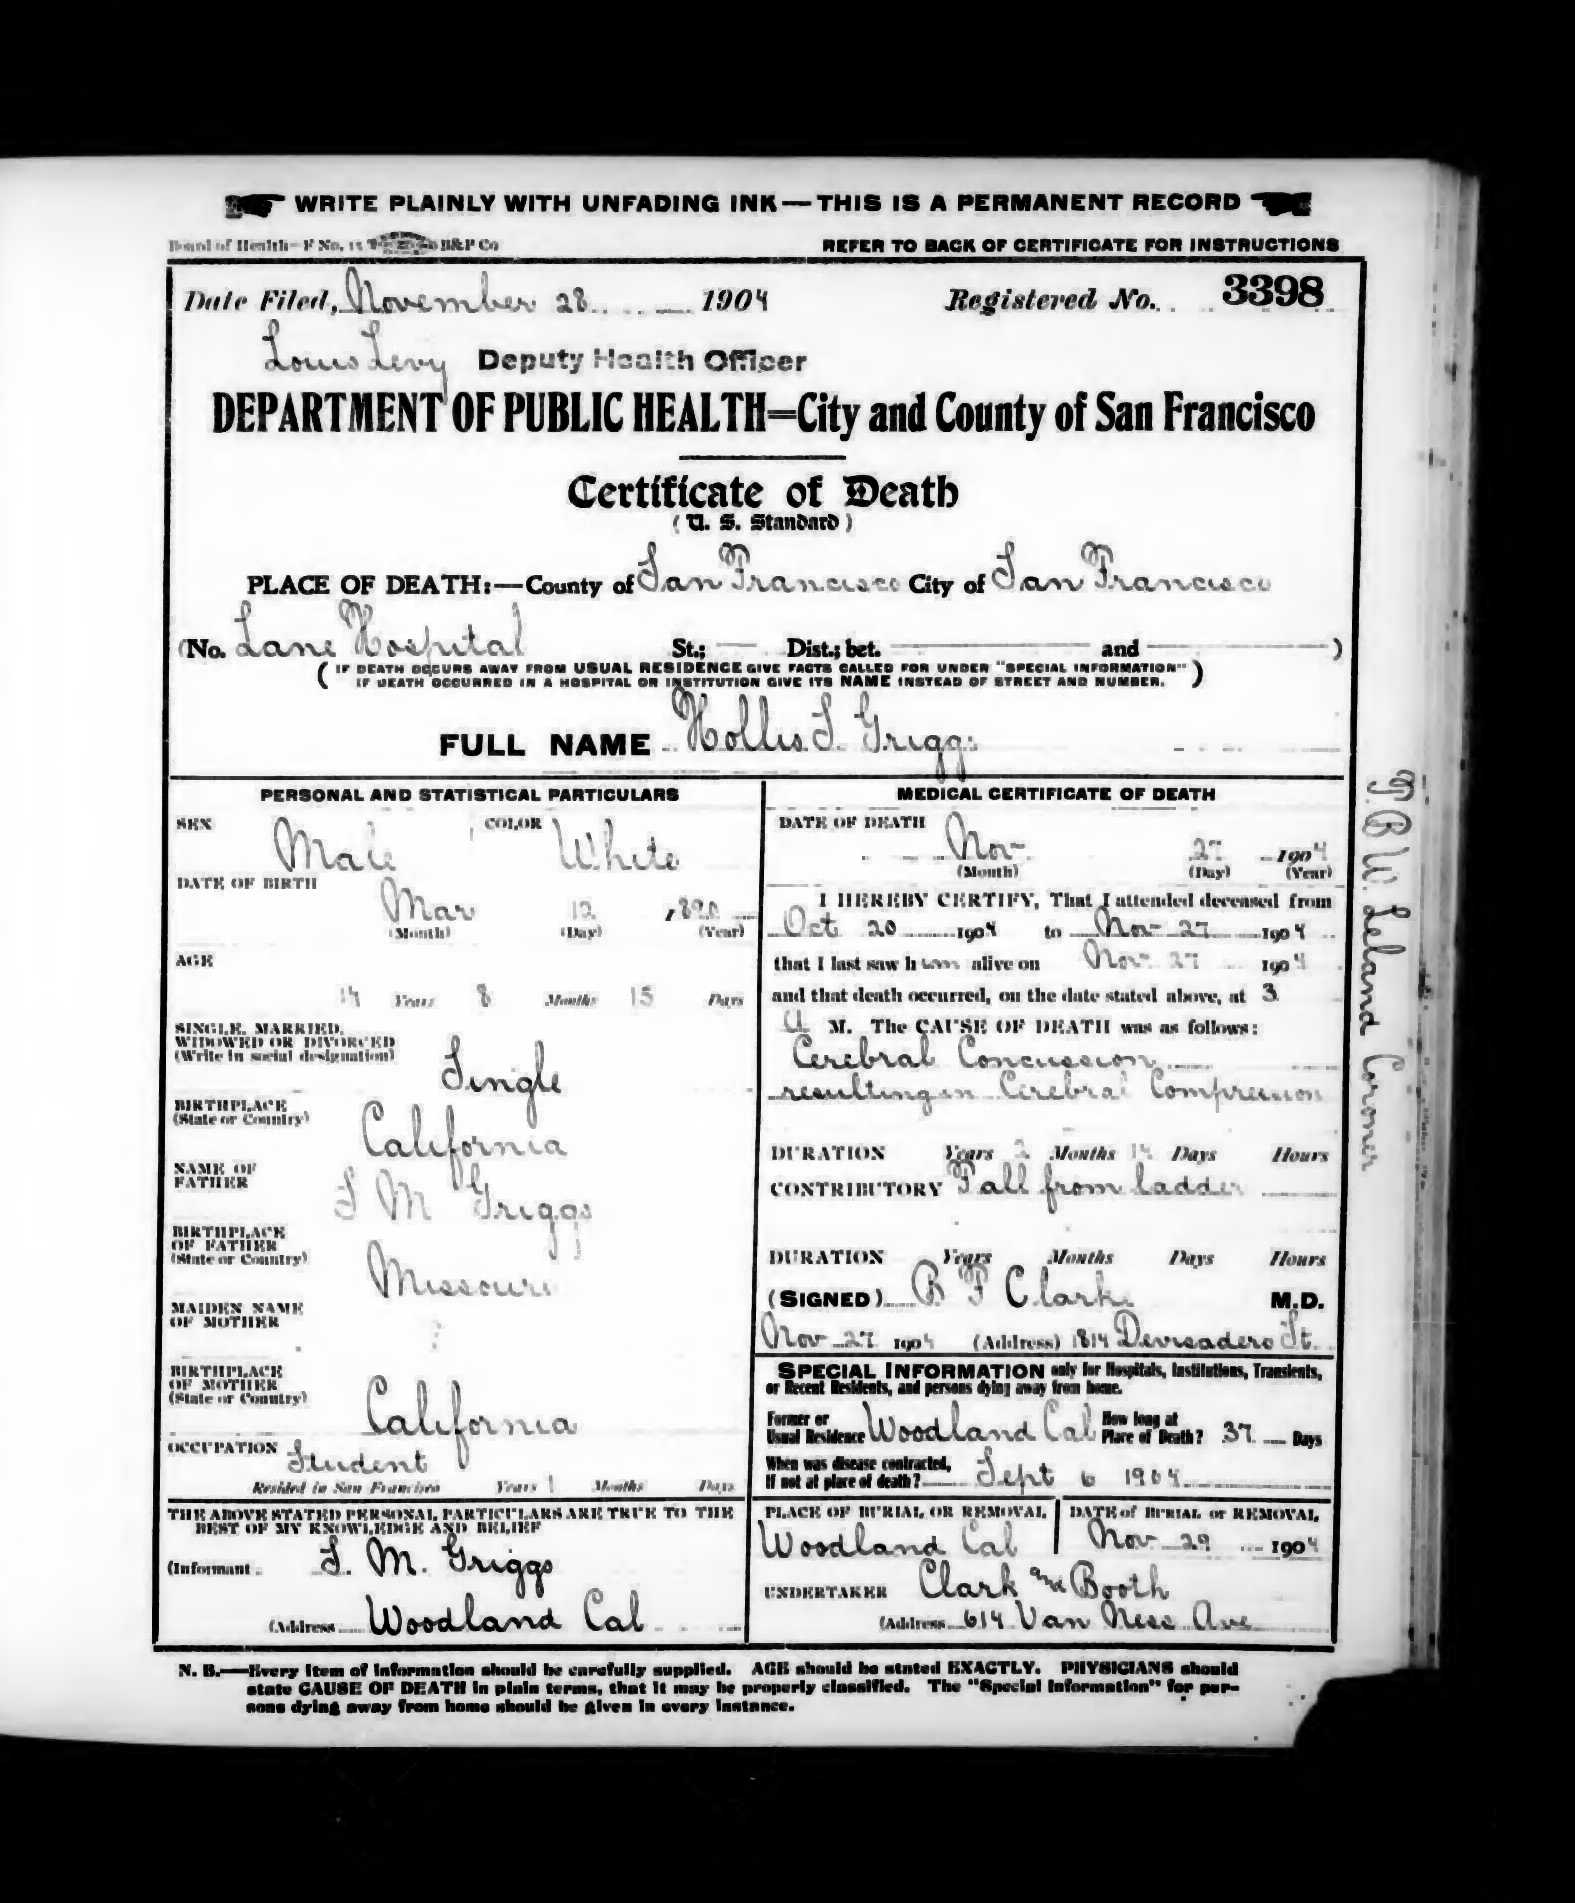 WRITE PLAINLY WITH UNFADING INK—THIS IS A PERMANENT RECORD
Board of Health—F No. 11 B&P Co
REFER TO BACK OF CERTIFICATE FOR INSTRUCTIONS
Date Filed, November 28 1904 Registered No. 3398
Louis Levy Deputy Health Officer
DEPARTMENT OF PUBLIC HEALTH=City and County of San Francisco
Certificate of Death
(U. S. Standard)
PLACE OF DEATH:—County of San Francisco City of San Francisco
(No. Lane Hospital St.; Dist.; bet. and )
(IF DEATH OCCURS AWAY FROM USUAL RESIDENCE GIVE FACTS CALLED FOR UNDER "SPECIAL INFORMATION"
IF DEATH OCCURRED IN A HOSPITAL OR INSTITUTION GIVE ITS NAME INSTEAD OF STREET AND NUMBER.)
FULL NAME Hollis S. Griggs
PERSONAL AND STATISTICAL PARTICULARS
SEX Male COLOR White
DATE OF BIRTH
Mar 12 1890
(Month) (Day) (Year)
AGE
14 Years 8 Months 15 Days
SINGLE, MARRIED,
WIDOWED OR DIVORCED
(Write in social designation) Single
BIRTHPLACE
(State or Country) California
NAME OF
FATHER S M Griggs
BIRTHPLACE
OF FATHER
(State or Country) Missouri
MAIDEN NAME
OF MOTHER ?
BIRTHPLACE
OF MOTHER
(State or Country) California
OCCUPATION Student
Resided in San Francisco Years 1 Months Days
THE ABOVE STATED PERSONAL PARTICULARS ARE TRUE TO THE
BEST OF MY KNOWLEDGE AND BELIEF
(Informant S. M. Griggs
(Address Woodland Cal
MEDICAL CERTIFICATE OF DEATH
DATE OF DEATH
Nov 27 1904
(Month) (Day) (Year)
I HEREBY CERTIFY, That I attended deceased from
Oct 20 1904 to Nov 27 1904
that I last saw h im alive on Nov 27 1904
and that death occurred, on the date stated above, at 3
a M. The CAUSE OF DEATH was as follows:
Cerebral Concussion
resulting in Cerebral Compression
DURATION Years 2 Months 14 Days Hours
CONTRIBUTORY Fall from ladder
DURATION Years Months Days Hours
(SIGNED) B F Clark M.D.
Nov 27 1904 (Address) 1814 Devisadero St.
SPECIAL INFORMATION only for Hospitals, Institutions, Transients,
or Recent Residents, and persons dying away from home.
Former or
Usual Residence Woodland Cal
How long at
Place of Death? 37 Days
When was disease contracted,
If not at place of death? Sept 6 1904
PLACE OF BURIAL OR REMOVAL
Woodland Cal
DATE of BURIAL or REMOVAL
Nov. 29 1904
UNDERTAKER Clark and Booth
(Address 614 Van Ness Ave
N. B.—Every item of information should be carefully supplied. AGE should be stated EXACTLY. PHYSICIANS should
state CAUSE OF DEATH in plain terms, that it may be properly classified. The "Special Information" for per-
sons dying away from home should be given in every instance.
T. B. W. Leland Coroner